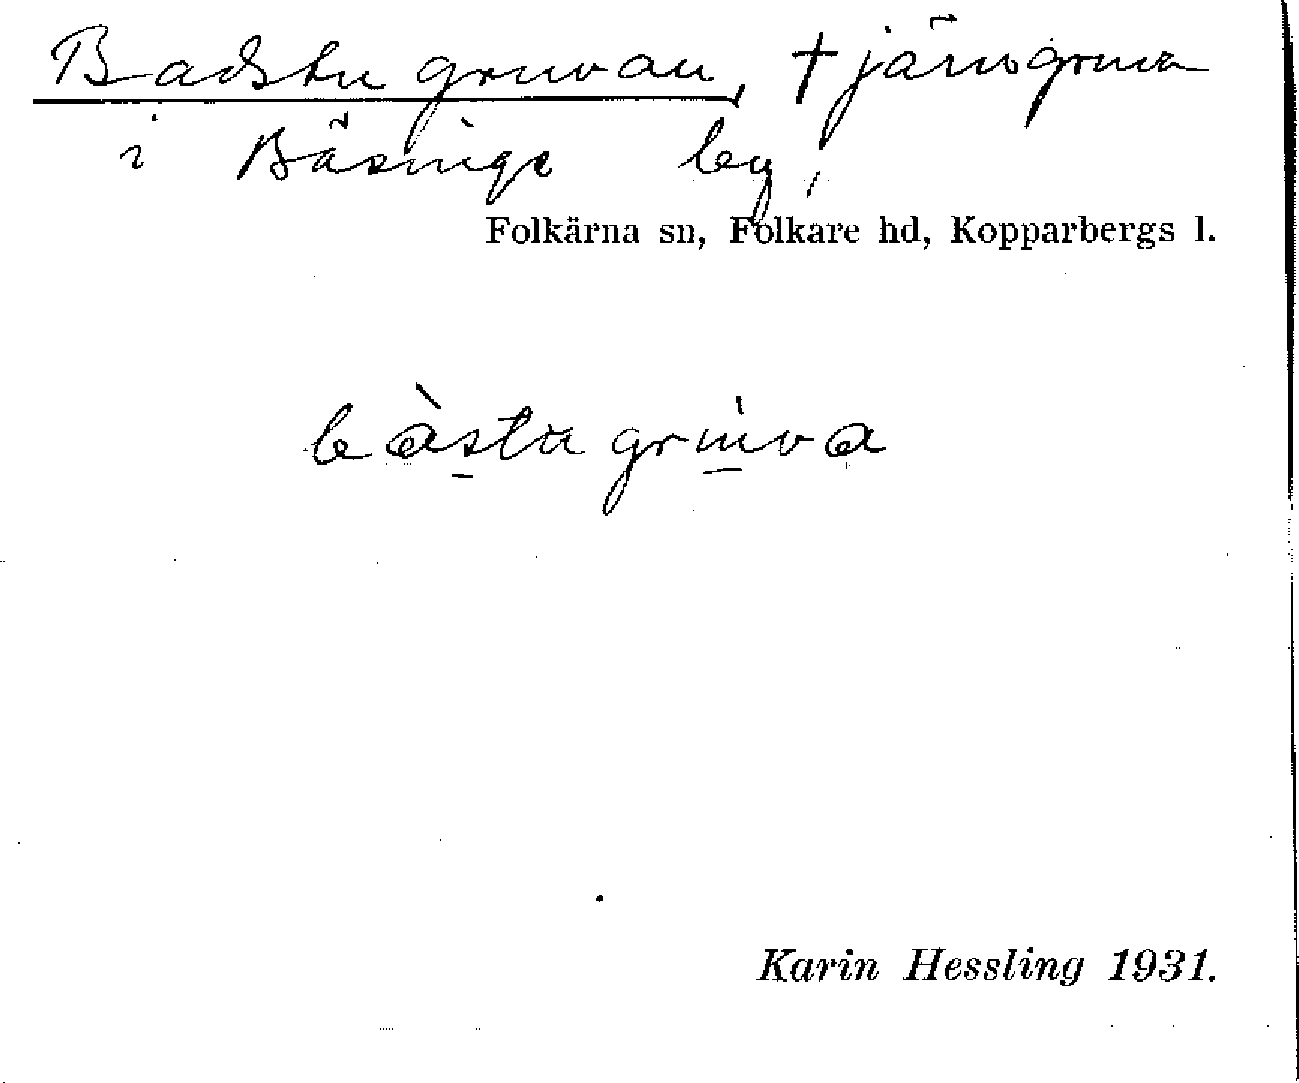 Badstugruvan, † järngruva
i Bäsinge by,
Folkärna sn, Folkare hd, Kopparbergs l.
bàstugru̇va
Karin Hessling 1931.